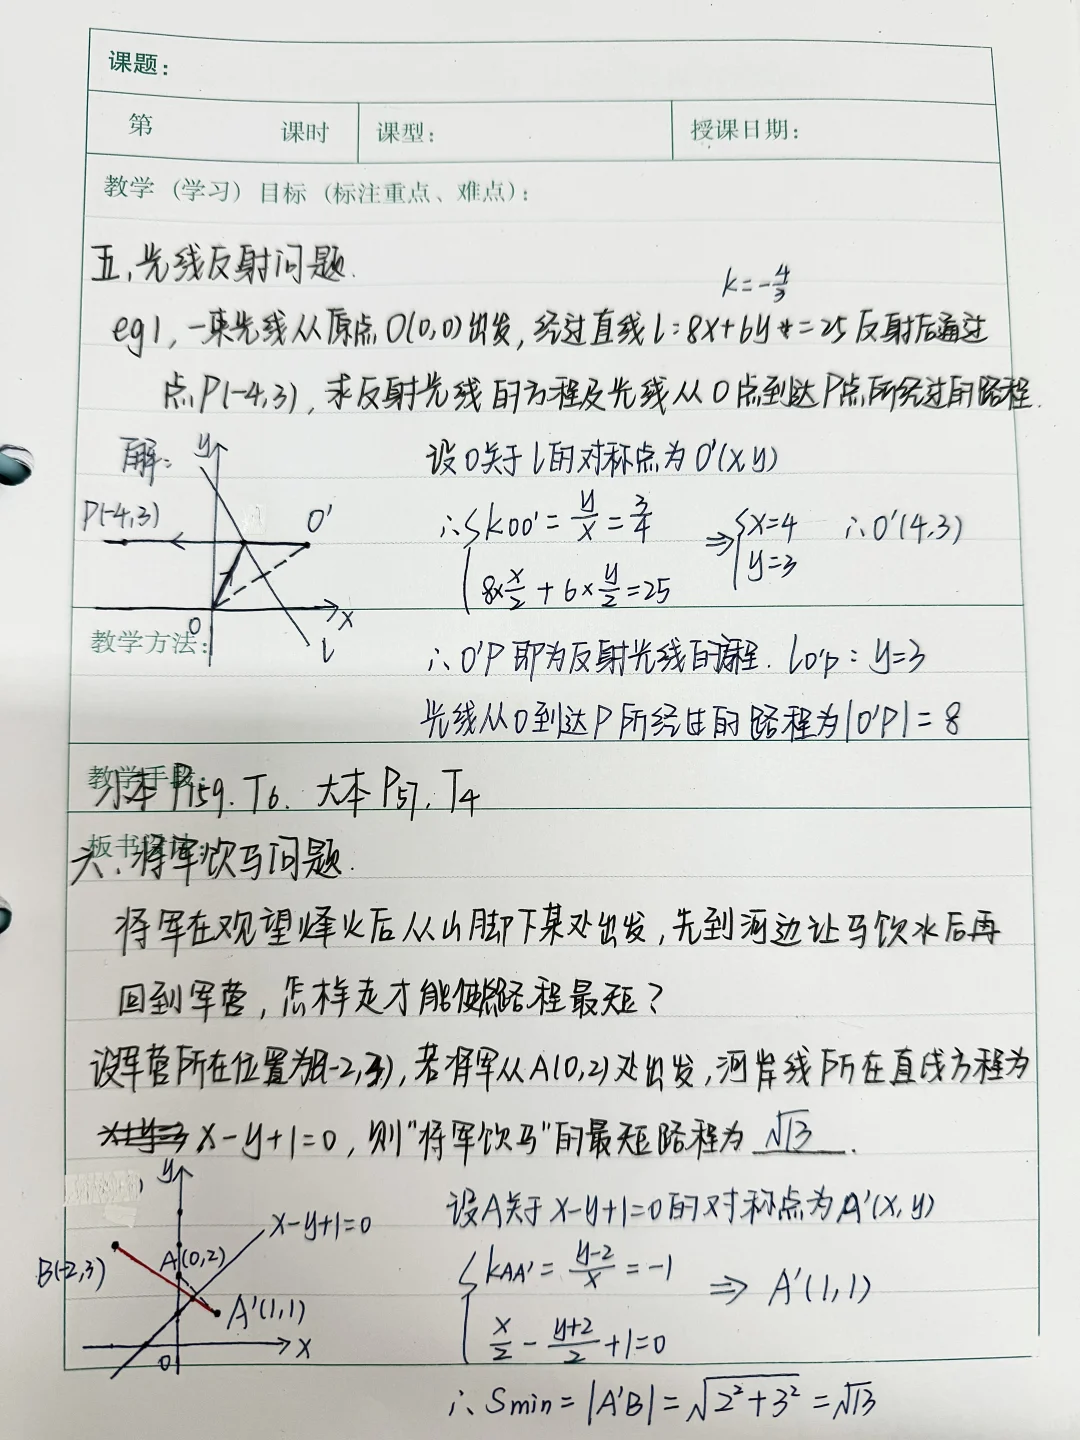 课题：
第 课时 课型： 授课日期：
教学（学习）目标（标注重点、难点）：
五、光线反射问题.
k=-4/3
eg1, 一束光线从原点O(0,0)出发,经过直线l:8x+6y=25反射后通过
点P(-4,3),求反射光线的方程及光线从O点到达P点所经过的路程.
解:
y
P(-4,3)
O'
O
x
l
设O关于l的对称点为O'(x,y)
∴{kOO'=y/x=3/4
8×x/2+6×y/2=25
⇒{x=4
y=3
∴O'(4,3)
教学方法：
∴O'P即为反射光线的方程. lO'P:y=3
光线从O到达P所经过的路程为|O'P|=8
教学手段：
小本P159.T6. 大本P57,T4
板书设计：
六、将军饮马问题.
将军在观望烽火后从山脚下某处出发,先到河边让马饮水后再
回到军营,怎样走才能使总路程最短?
设军营所在位置为B(-2,3),若将军从A(0,2)处出发,河岸线所在直线方程为
x-y+1=0,则"将军饮马"的最短路程为√13.
y
x-y+1=0
B(-2,3)
A(0,2)
A'(1,1)
O
x
设A关于x-y+1=0的对称点为A'(x,y)
{kAA'=(y-2)/x=-1
x/2-(y+2)/2+1=0
⇒ A'(1,1)
∴Smin=|A'B|=√(2²+3²)=√13